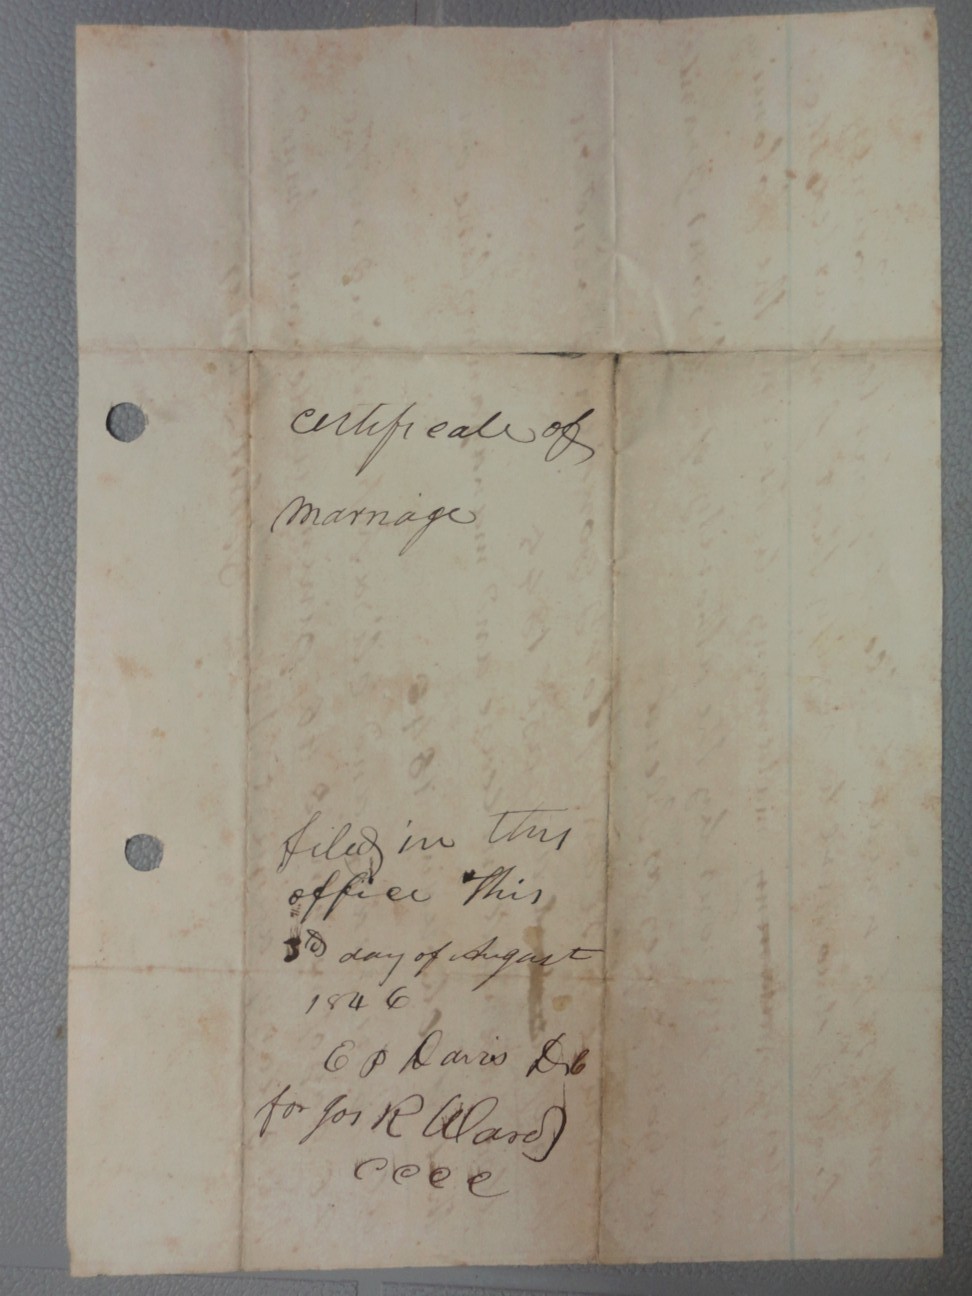 certificate of
marriage
filed in this
office this
3rd day of August
1846
E P Davis D c
for Jos R Ward
cccc